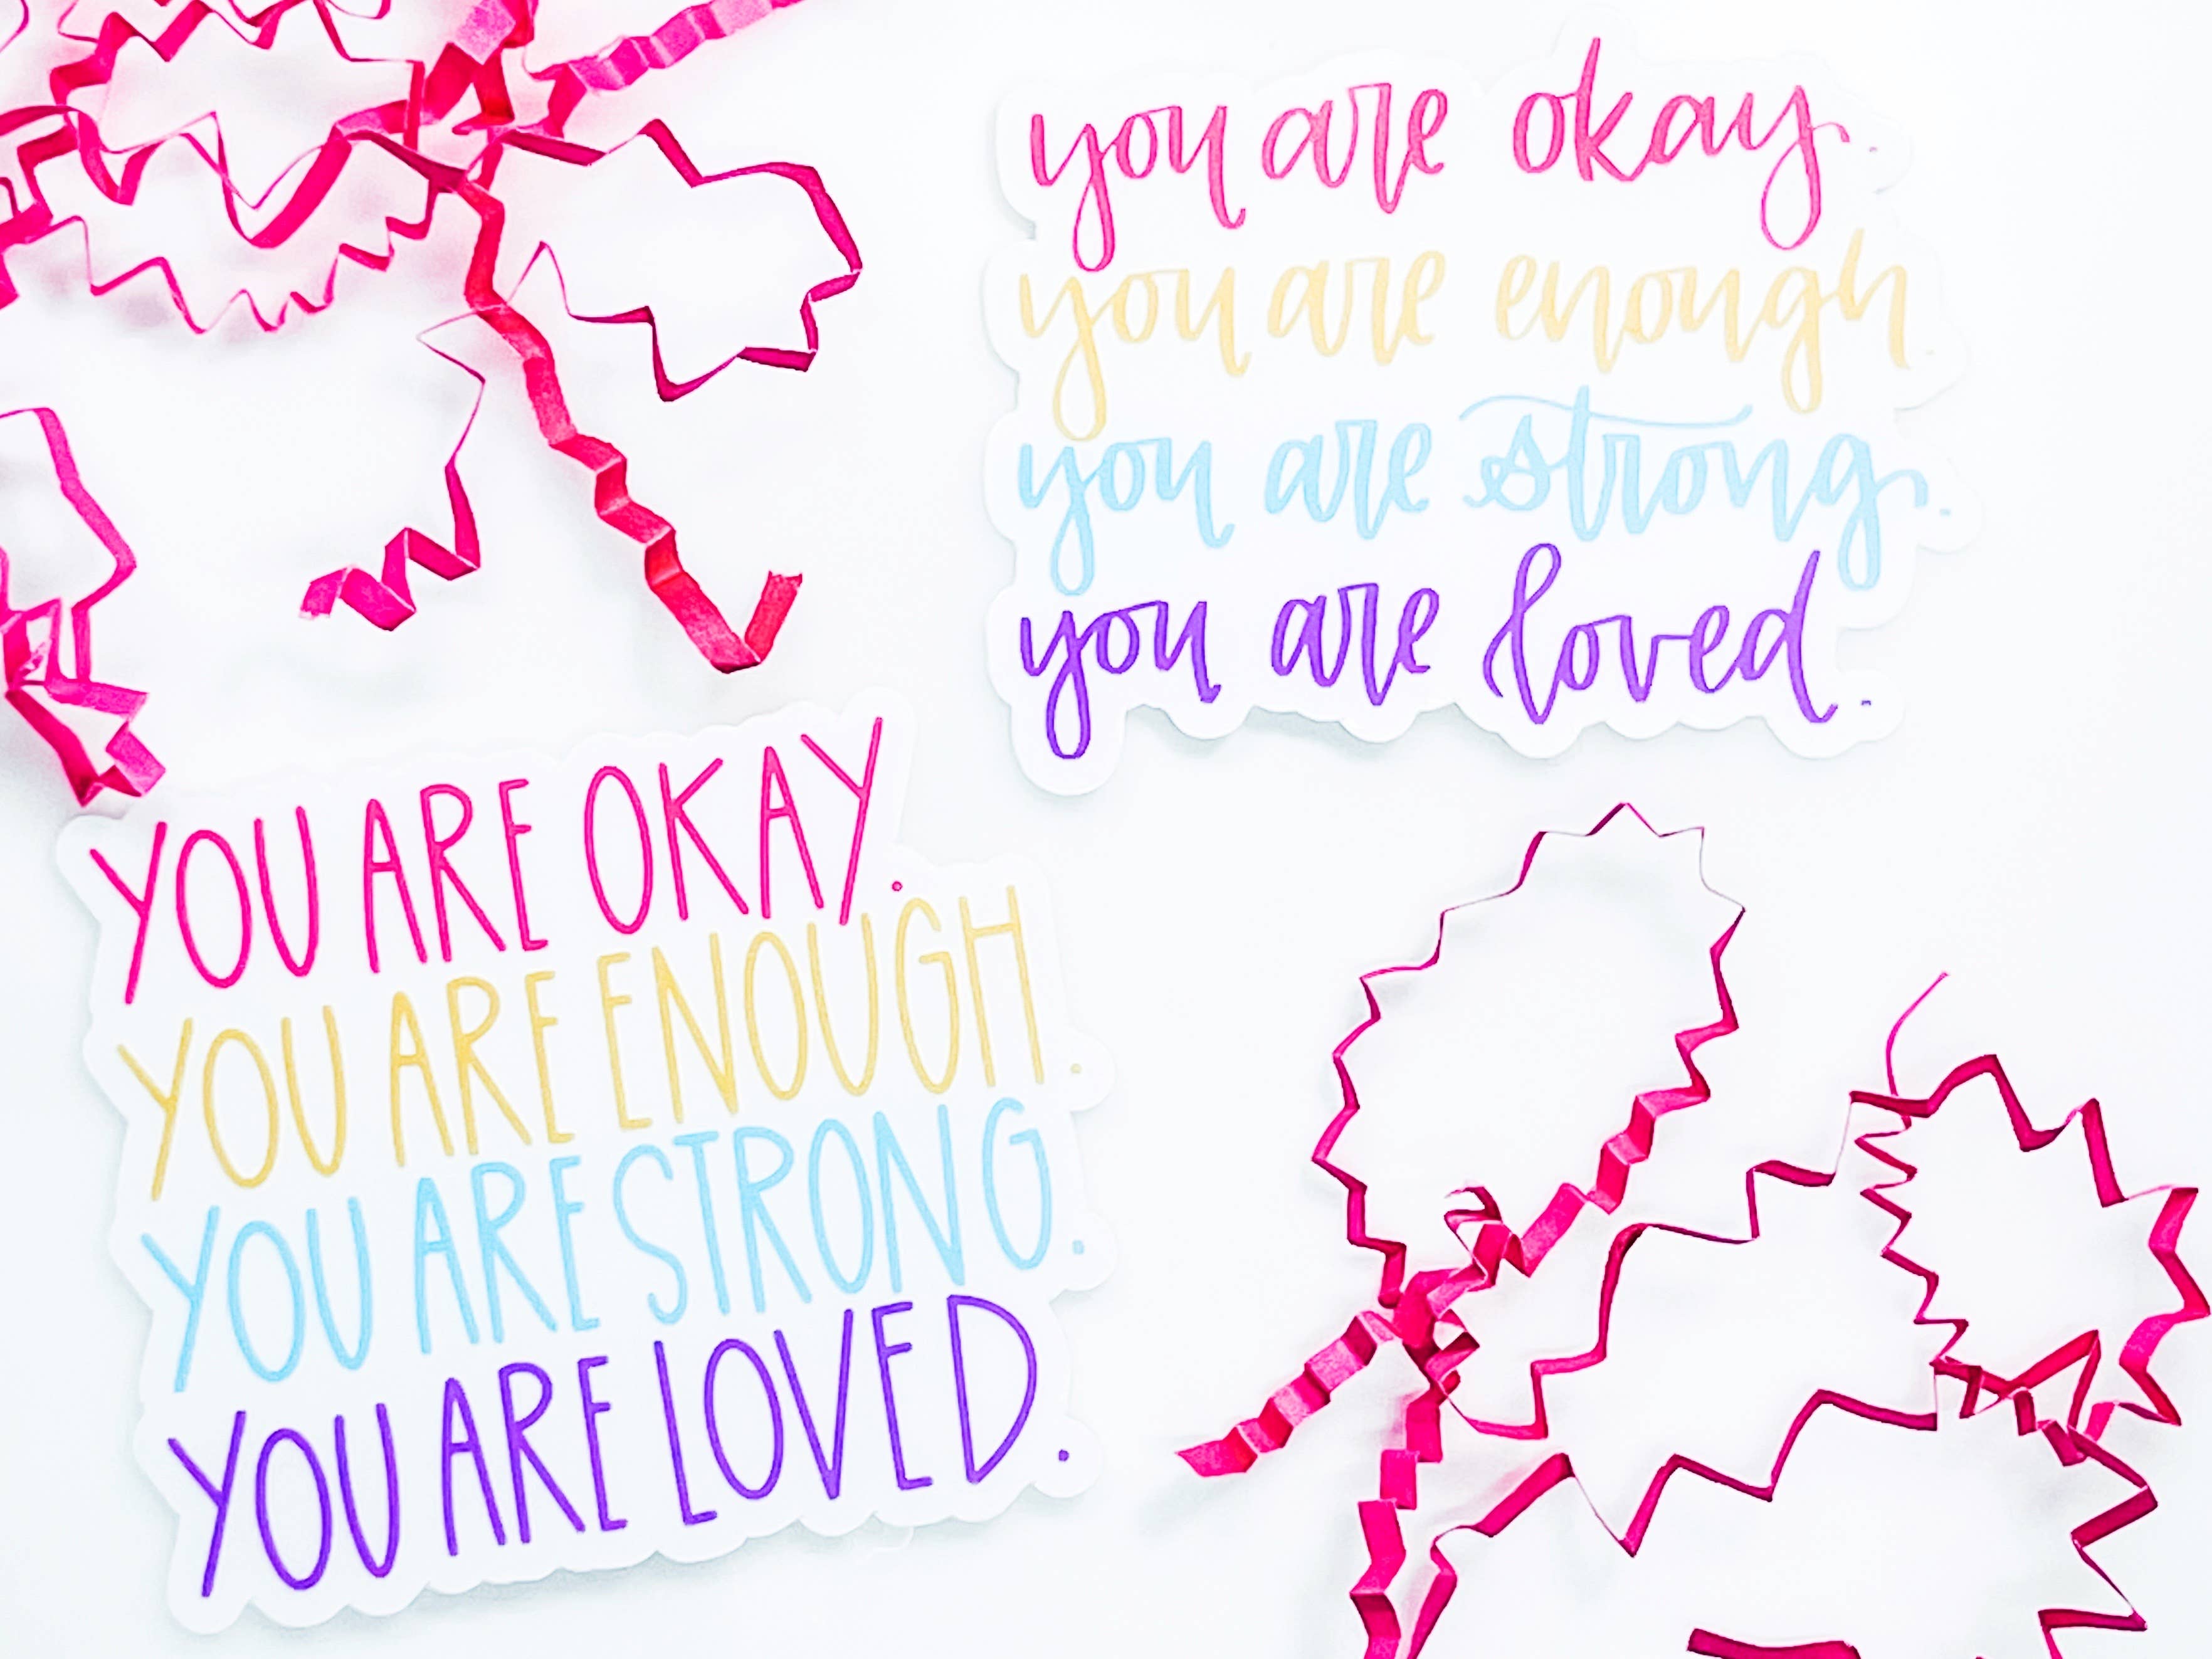 you are okay.
you are enough.
you are strong.
you are loved.
YOU ARE OKAY.
YOU ARE ENOUGH.
YOU ARE STRONG.
YOU ARE LOVED.